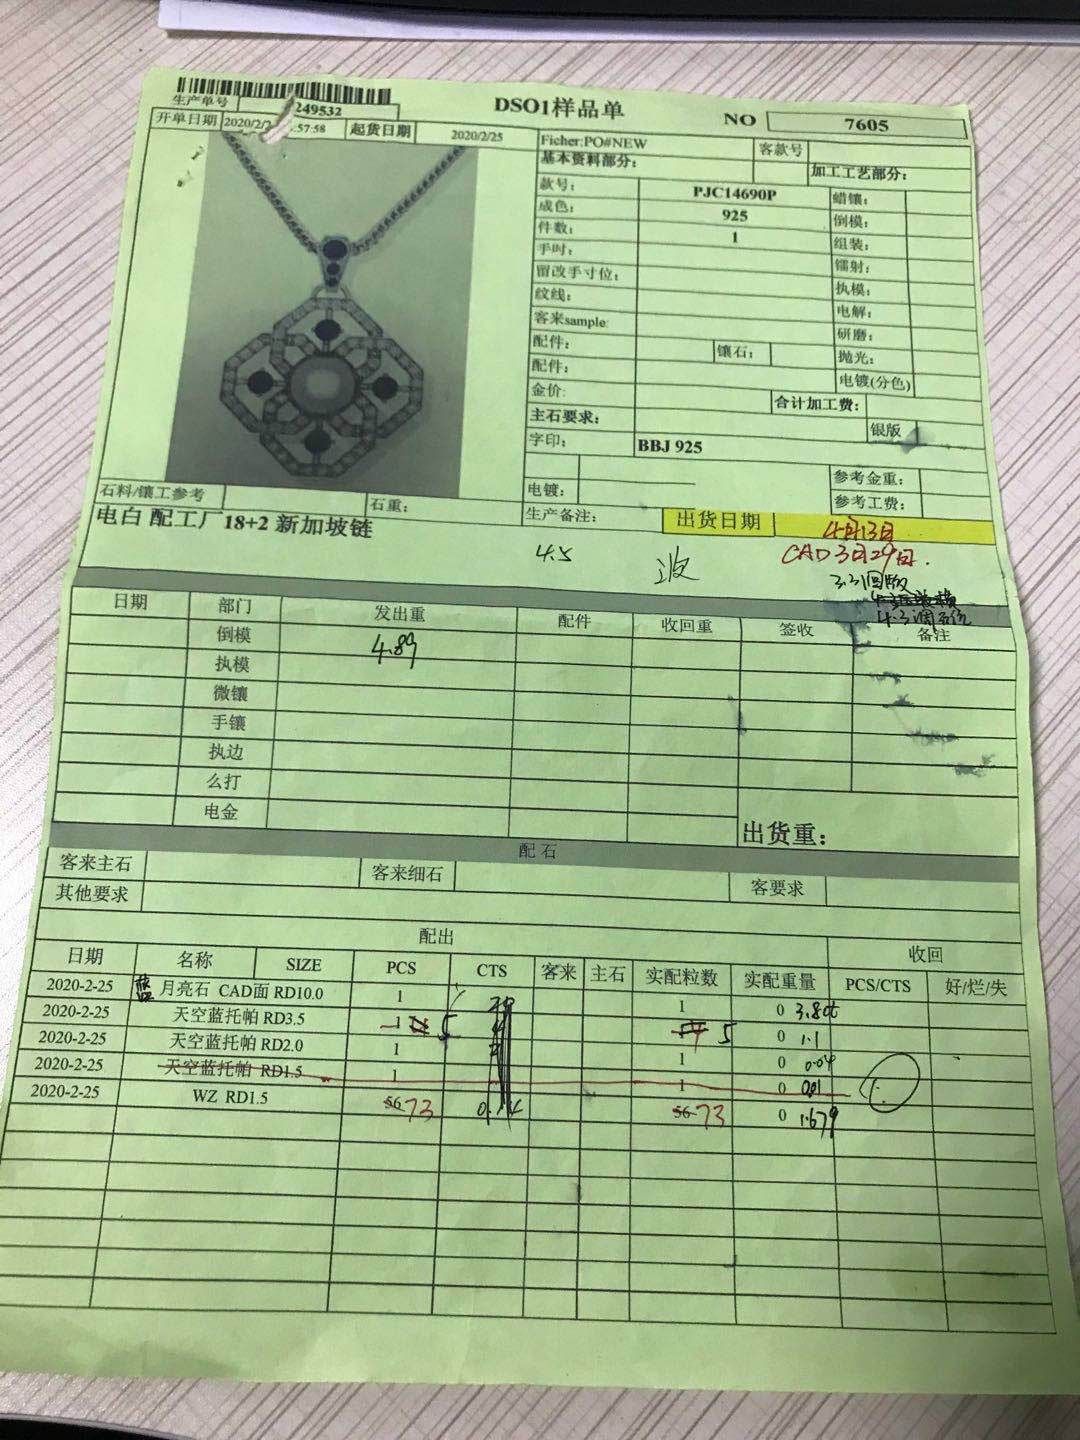 DSO1样品单
NO 7605
生产单号 249532
开单日期 2020/2/2 :57:58 起货日期 2020/2/25
Ficher:PO#NEW 客款号
基本资料部分: 加工工艺部分:
款号: PJC14690P 蜡镶:
成色: 925 倒模:
件数: 1 组装:
手吋: 镭射:
留改手寸位: 执模:
纹线: 电解:
客来sample: 研磨:
配件: 镶石: 抛光:
配件: 电镀(分色)
金价: 合计加工费:
主石要求: 银版
字印: BBJ 925
参考金重:
电镀: 参考工费:
石料/镶工参考 石重: 生产备注: 出货日期 4月13日
电白 配工厂18+2 新加坡链
4.5 CAD 3月29日.
日期 部门 发出重 配件 收回重 签收 备注
倒模 4.89
执模
微镶
手镶
执边
么打
电金
出货重:
配 石
客来主石 客来细石 客要求
其他要求
配出 收回
日期 名称 SIZE PCS CTS 客来 主石 实配粒数 实配重量 PCS/CTS 好/烂/失
2020-2-25 蓝 月亮石 CAD面 RD10.0 1 1 0 3.8ct
2020-2-25 天空蓝托帕 RD3.5 5 5 0 1.1
2020-2-25 天空蓝托帕 RD2.0 1 1 0 0.04
2020-2-25 天空蓝托帕 RD1.5 1 1 0 0.01
2020-2-25 WZ RD1.5 56 73 56 73 0 1.679